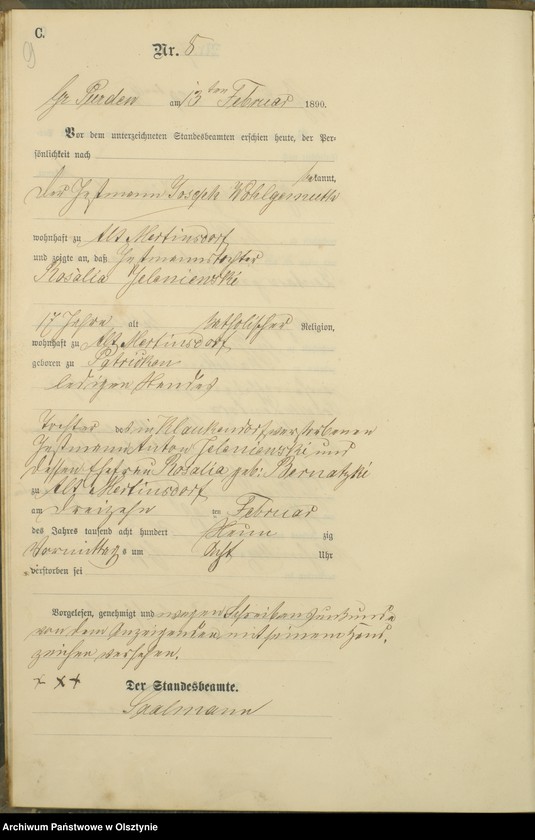 C.
Nr. 8
Gr Purden am 13ten Februar 1890.
Vor dem unterzeichneten Standesbeamten erschien heute, der Per-
sönlichkeit nach
bekannt,
der Instmann Joseph Wohlgemuth
wohnhaft zu Alt Mertinsdorf
und zeigte an, daß Instmannstochter
Rosalia Jeleniewski
17 Jahre alt katholischer Religion,
wohnhaft zu Alt Mertinsdorf
geboren zu Patricken
ledigen Standes
Tochter des in Klaukendorf verstorbenen
Instmann Anton Jeleniewski und
dessen Ehefrau Rosalia geb: Bernatzki
zu Alt Mertinsdorf
am dreizehn ten Februar
des Jahres tausend acht hundert Neun zig
Vormittags um Acht Uhr
verstorben sei
Vorgelesen, genehmigt und wegen Schreibensunkunde
von dem Anzeigenden mit seinem Hand-
zeichen versehen.
x x x
Der Standesbeamte.
Saalmann
Archiwum Państwowe w Olsztynie